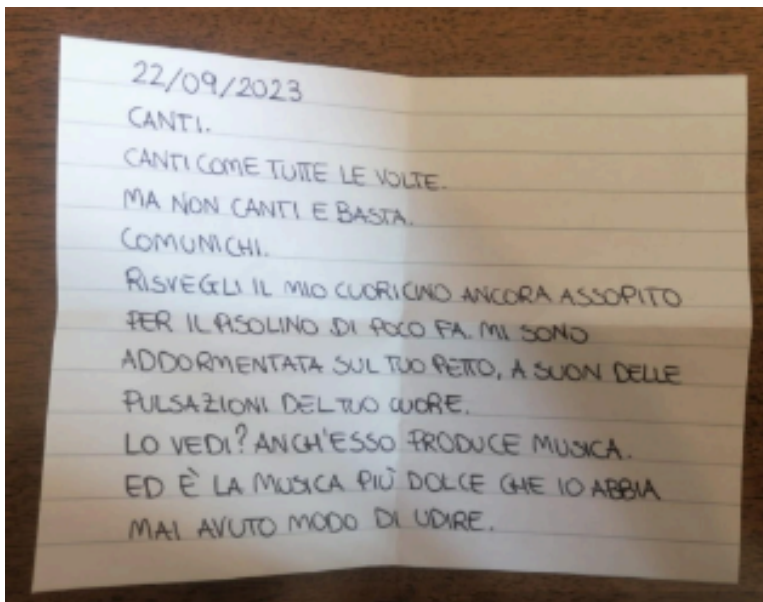 22/09/2023
CANTI.
CANTI COME TUTTE LE VOLTE.
MA NON CANTI E BASTA.
COMUNICHI.
RISVEGLI IL MIO CUORICINO ANCORA ASSOPITO
PER IL PISOLINO DI POCO FA. MI SONO
ADDORMENTATA SUL TUO PETTO, A SUON DELLE
PULSAZIONI DEL TUO CUORE.
LO VEDI? ANCH'ESSO PRODUCE MUSICA.
ED È LA MUSICA PIÙ DOLCE CHE IO ABBIA
MAI AVUTO MODO DI UDIRE.